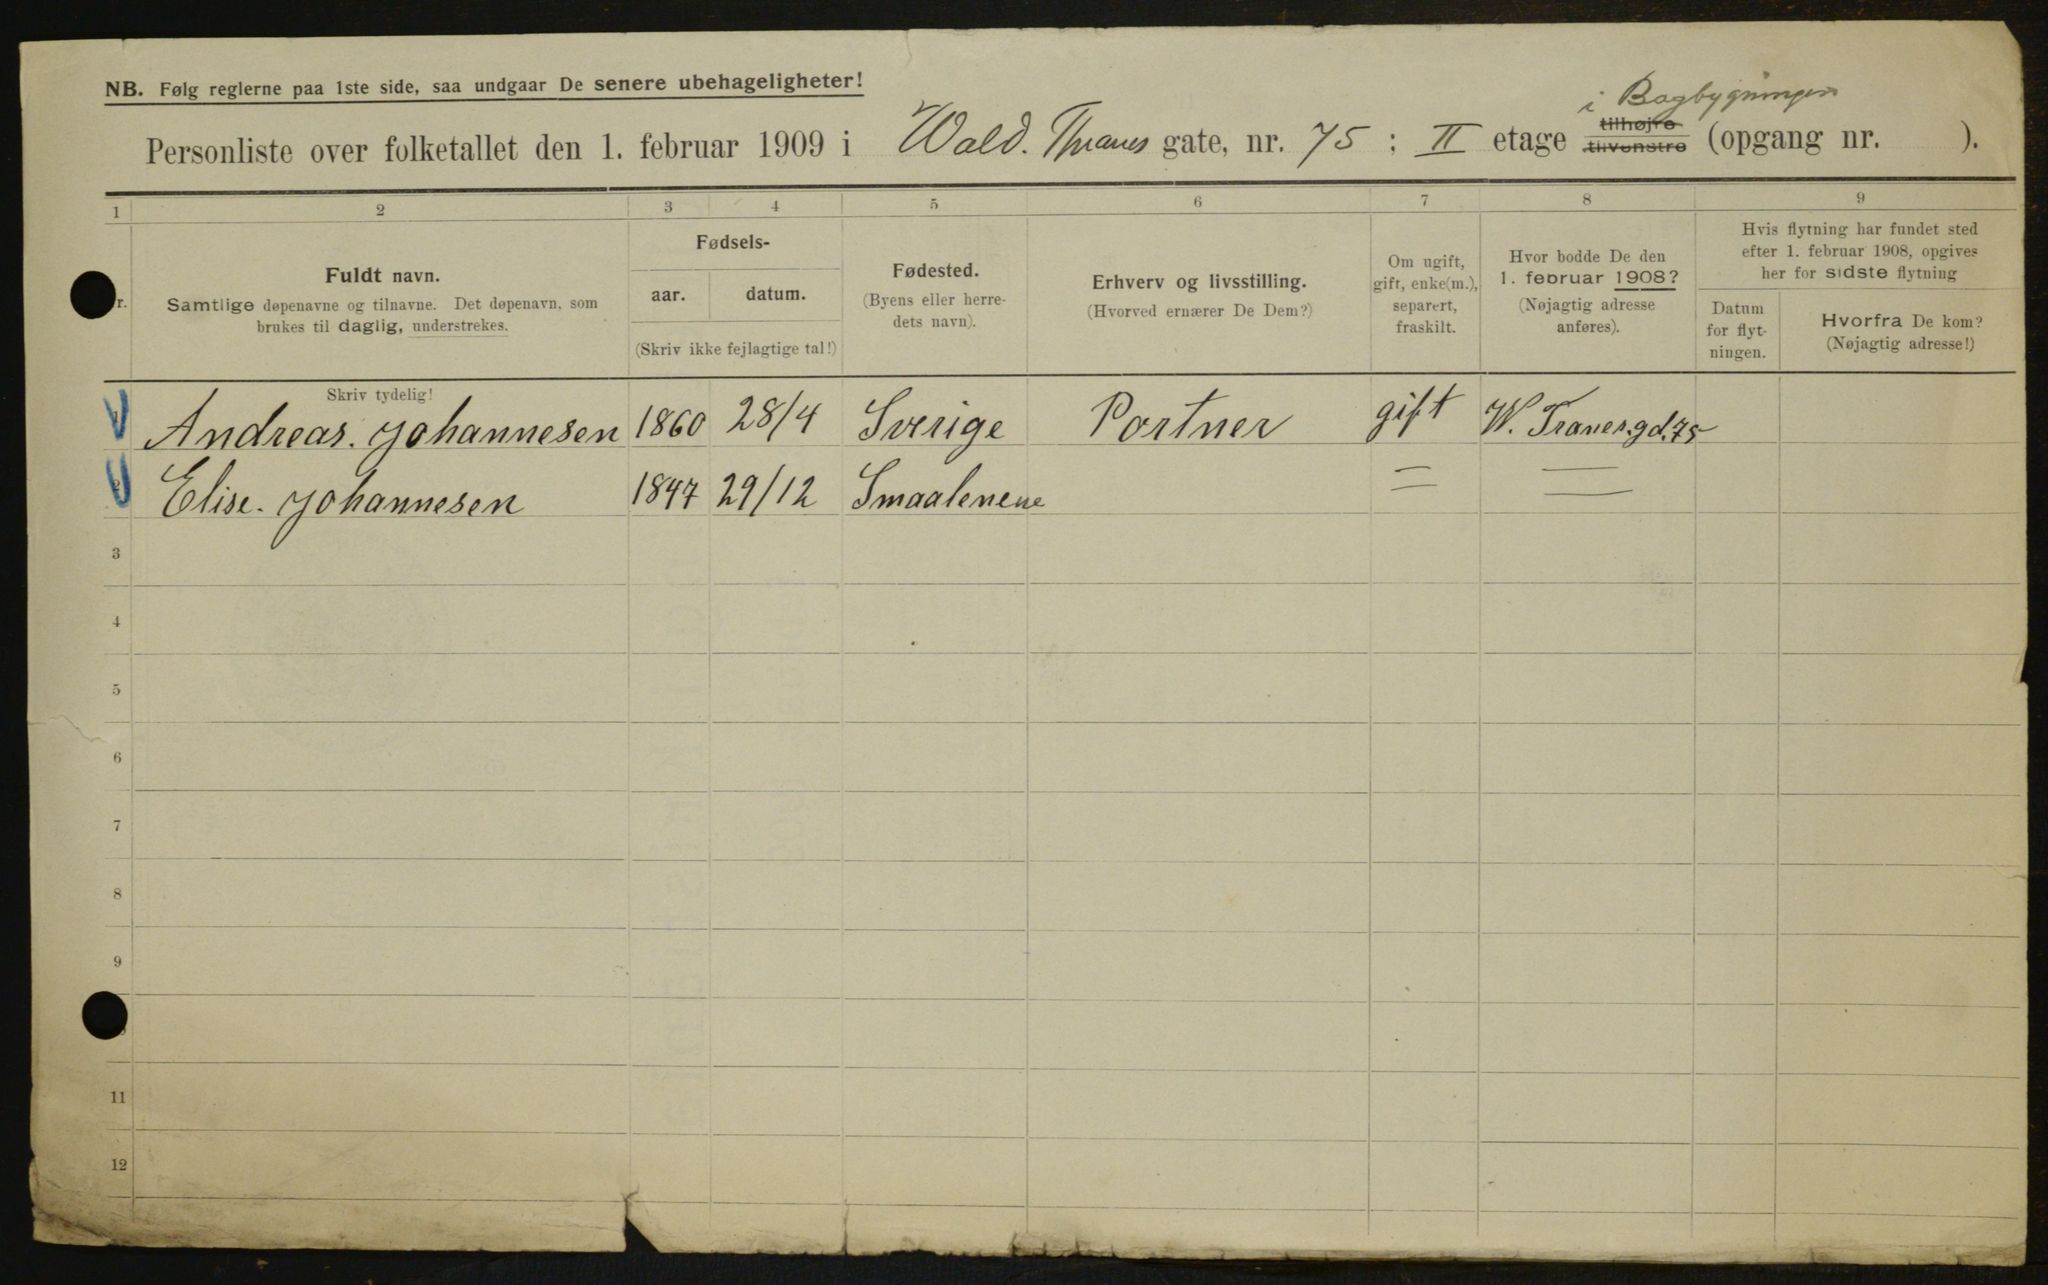 NB. Følg reglerne paa 1ste side, saa undgaar De senere ubehageligheter!
i Bagbygningen
Personliste over folketallet den 1. februar 1909 i Wald. Thranes gate, nr. 75 ; II etage tilhøjre tilvenstre (opgang nr. ).
1 2 3 4 5 6 7 8 9
r.
Fuldt navn.
Samtlige døpenavne og tilnavne. Det døpenavn, som
brukes til daglig, understrekes.
Fødsels-
aar. datum.
(Skriv ikke fejlagtige tal!)
Fødested.
(Byens eller herre-
dets navn).
Erhverv og livsstilling.
(Hvorved ernærer De Dem?)
Om ugift,
gift, enke(m.),
separert,
fraskilt.
Hvor bodde De den
1. februar 1908?
(Nøjagtig adresse
anføres).
Hvis flytning har fundet sted
efter 1. februar 1908, opgives
her for sidste flytning
Datum
for flyt-
ningen.
Hvorfra De kom?
(Nøjagtig adresse!)
Skriv tydelig!
Andreas. Johannesen 1860 28/4 Sverige Portner gift W. Tranes.gd.75
2 Elise. Johannesen 1847 29/12 Smaalenene = =
3
4
5
6
7
8
9
11
12